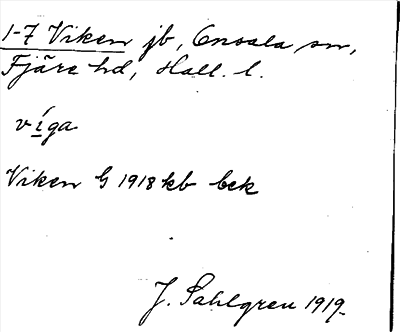 1-7 Viken jb, Onsala sn,
Fjäre hd, Hall. l.
víga
Viken G 1918 kb bek
J. Sahlgren 1919.